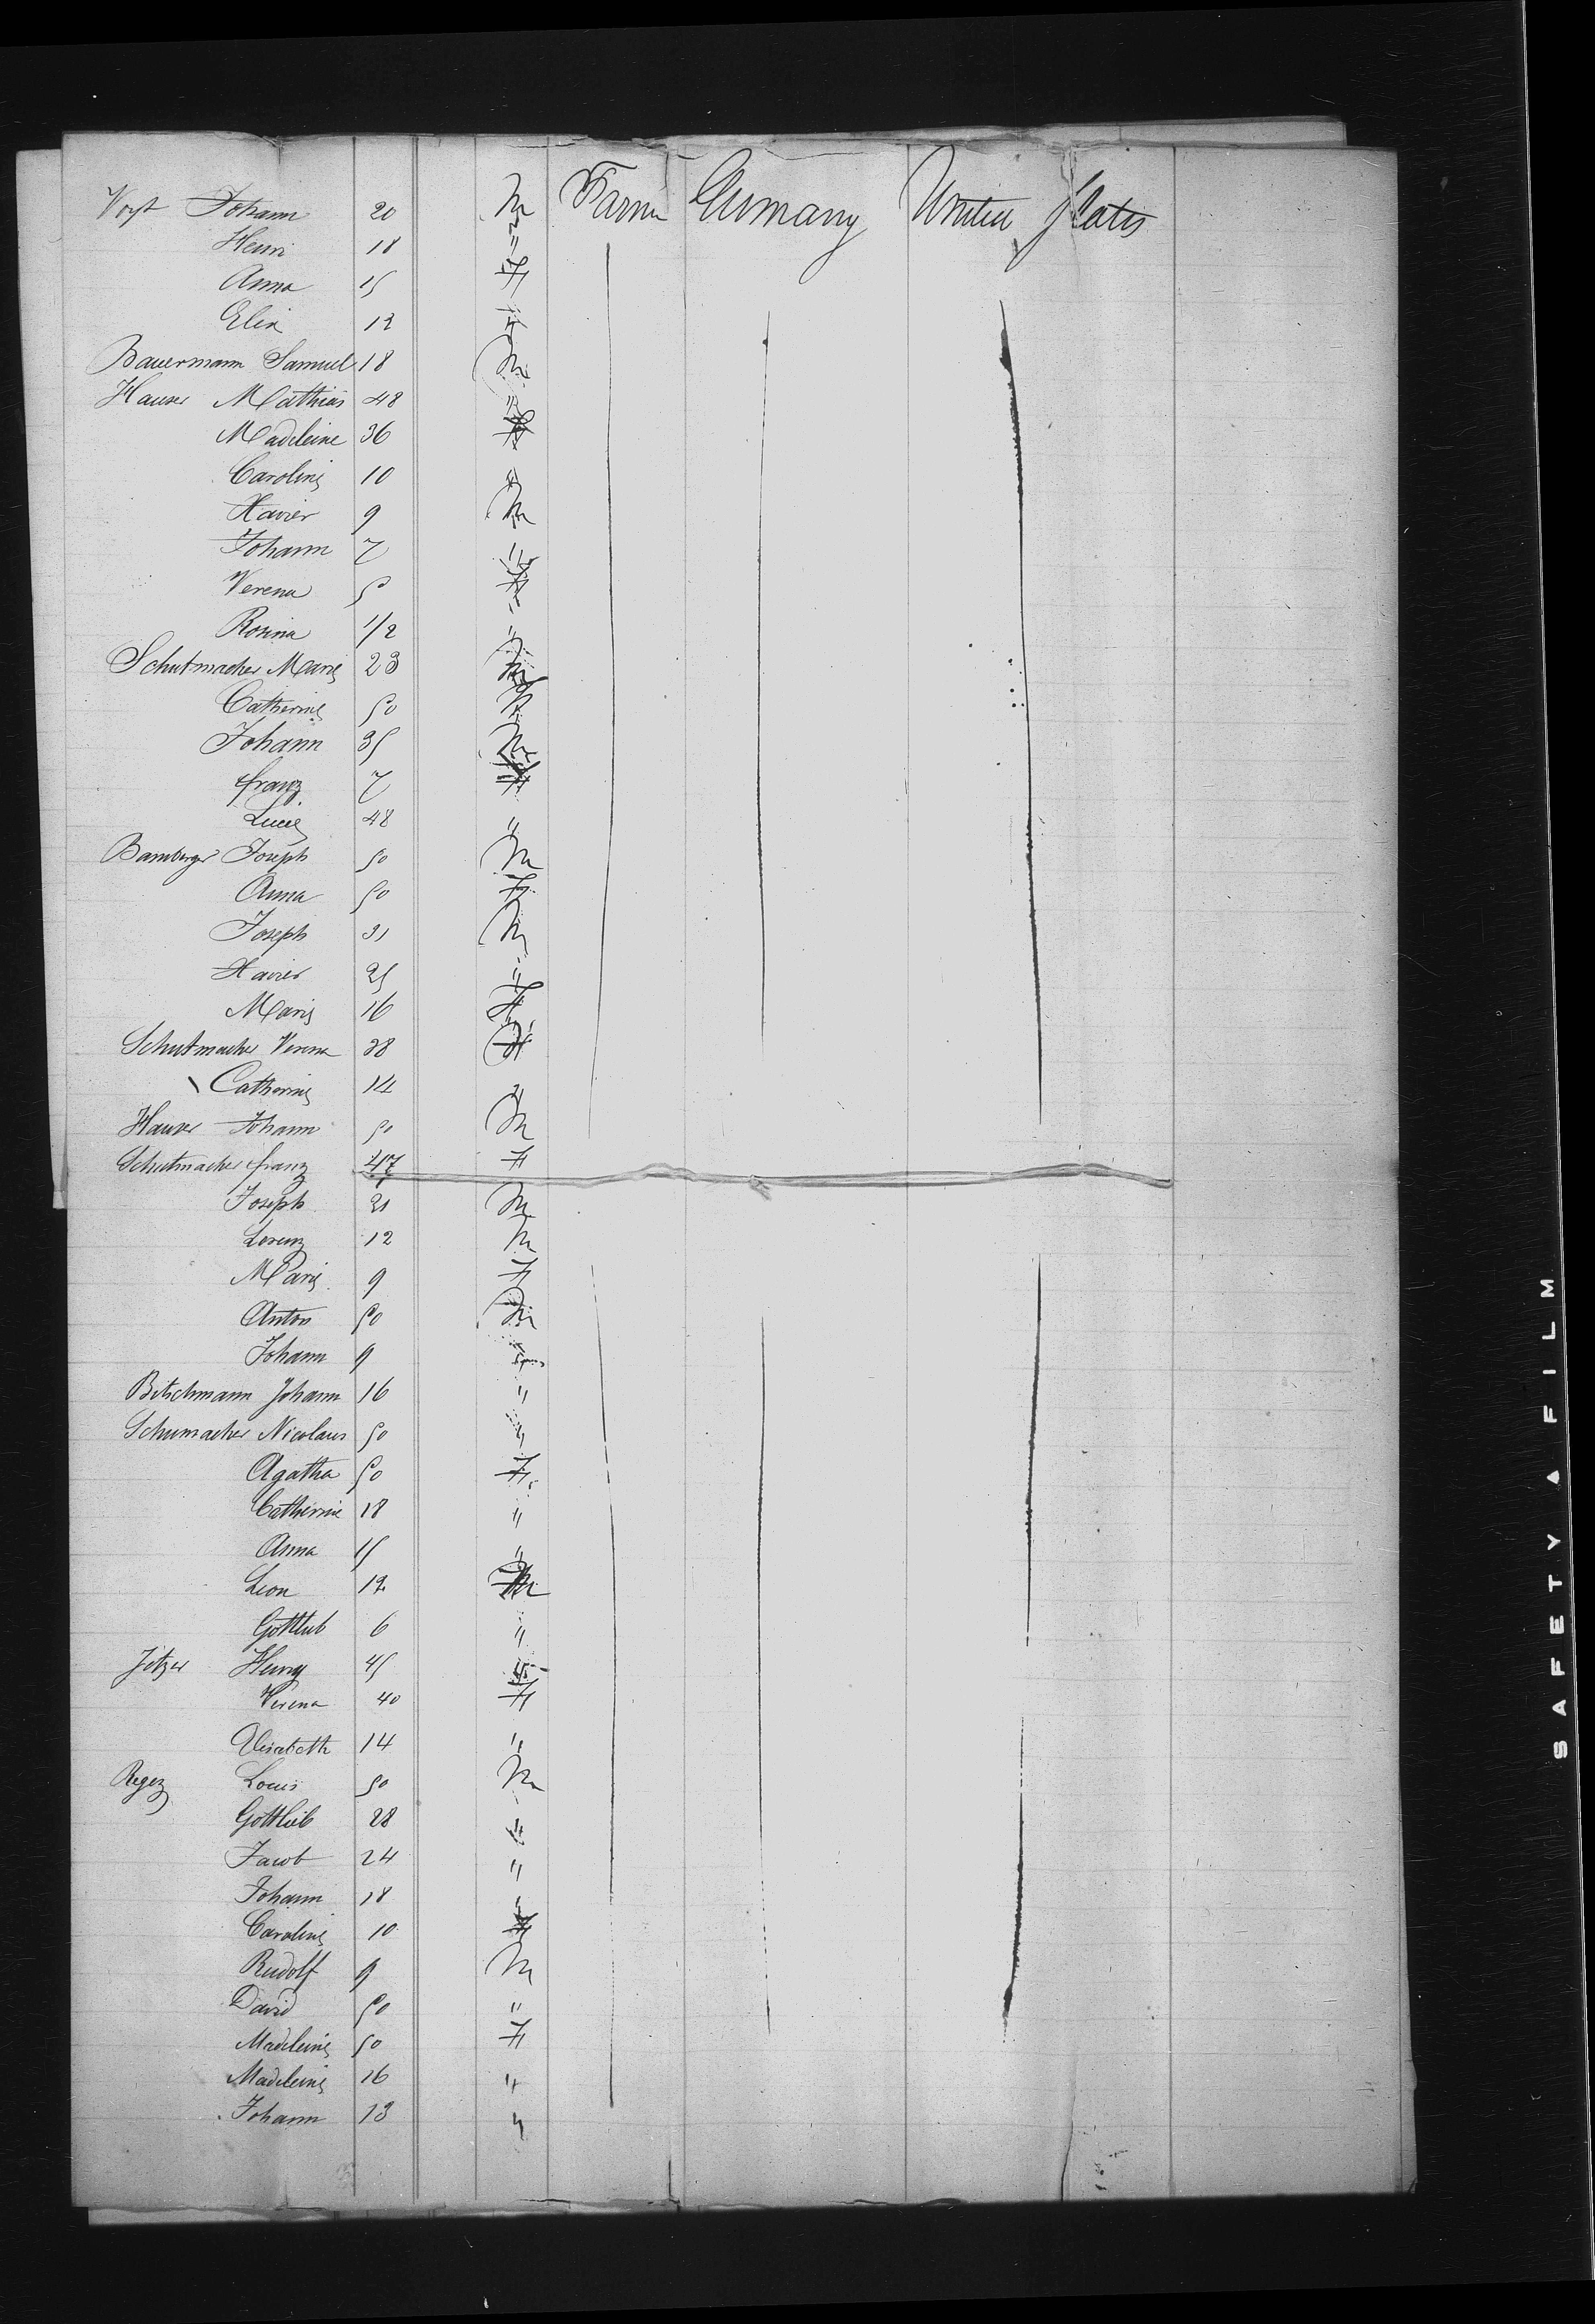 Vogt Johann 20 M Farmer Germany United States
Henri 18 "
Anna 15 F
Elise 12 "
Bauermann Samuel 18 M
Hauser Mathias 48 "
Madeleine 36 F
Caroline 10 "
Xavier 9 M
Johann 7 "
Verena 5 F
Rosina 1/2 "
Schutmacher Marie 23
Catherine 50
Johann 35 M
franz 7
Lucie 48 "
Bamberger Joseph 50 M
Anna 50 F
Joseph 31 M
Xavier 25 "
Marie 16 F
Schutmacher Verena 38 F
Catherine 14 "
Hauser Johann 50 M
Schutmacher franz 47 F
Joseph 21 M
Lorenz 12 M
Marie 9 F
Anton 50 M
Johann 9 "
Betschmann Johann 16 "
Schumacher Nicolaus 50 "
Agatha 50 F
Catherine 18 "
Anna 15 "
Leon 12 M
Gottlieb 6 "
Jetzer Henry 45 "
Verena 40 F
Elisabeth 14 "
Regez Louis 50 M
Gottlieb 28 "
Jacob 24 "
Johann 18 "
Caroline 10 F
Rudolf 9 M
David 50 "
Madeleine 50 F
Madeleine 16 "
Johann 13 "
SAFETY A FILM